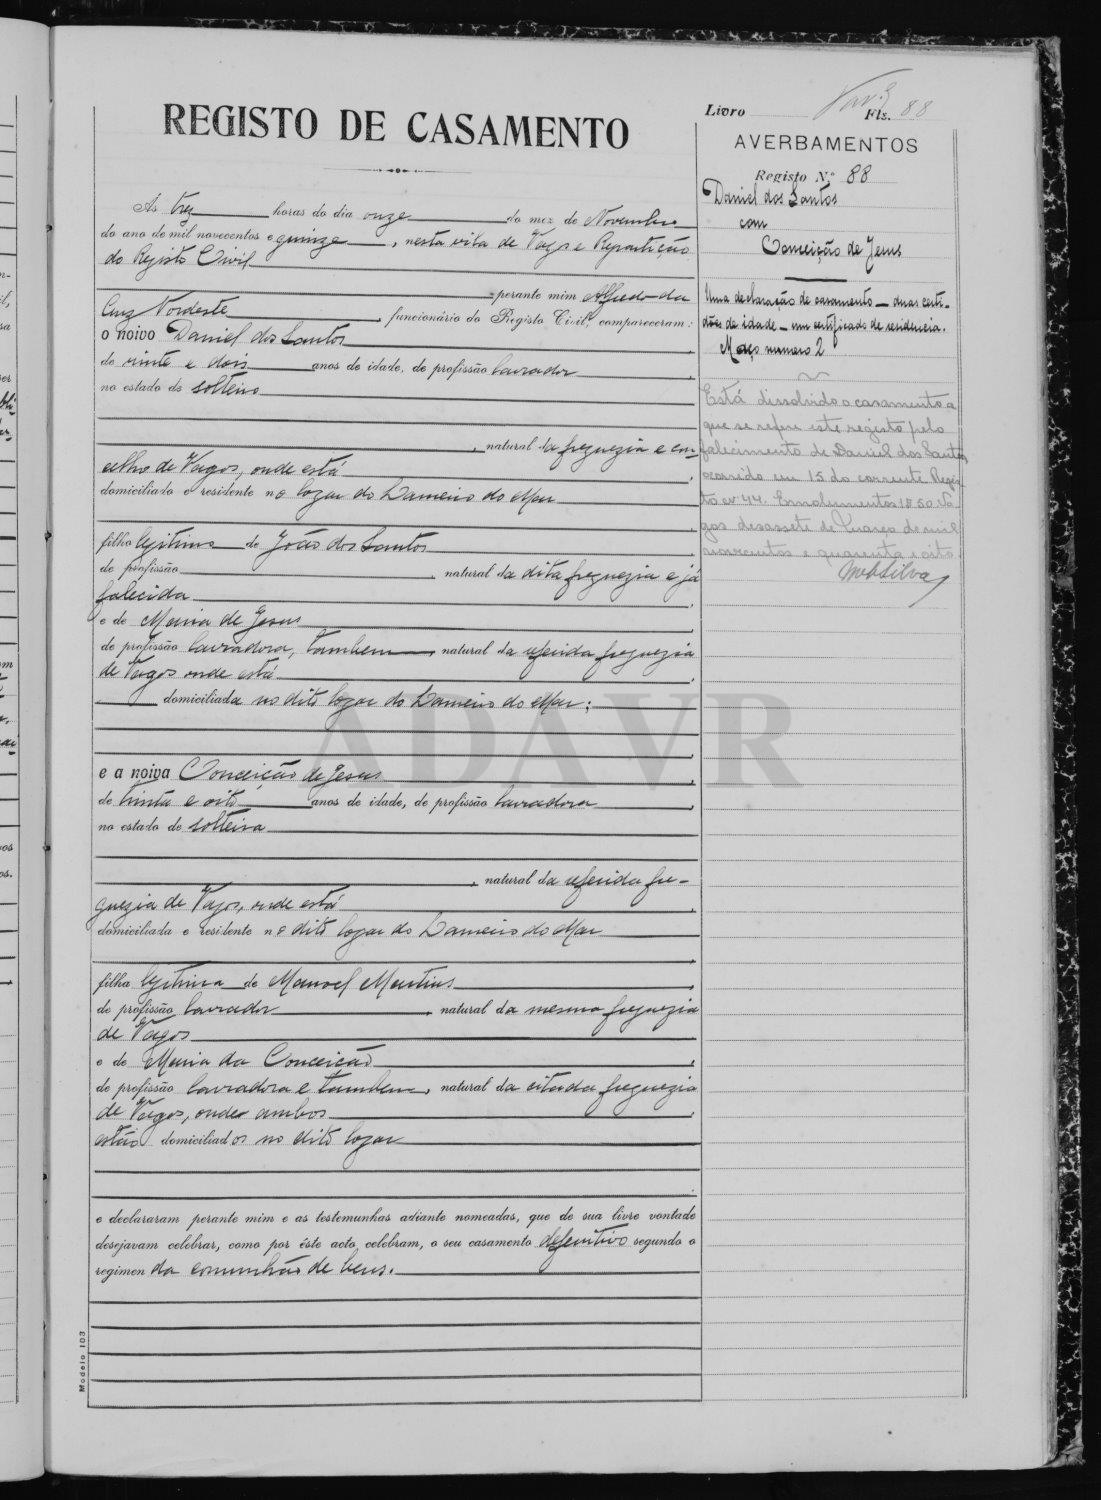 REGISTO DE CASAMENTO
Ás trez horas do dia onze do mez de Novembro
do ano de mil novecentos e quinze, nesta vila de Vagos e Repartição
do Registo Civil
perante mim Alfredo da
Cruz Nordeste, funcionário do Registo Civil, compareceram:
o noivo Daniel dos Santos
de vinte e dois anos de idade, de profissão lavrador
no estado de solteiro
, natural da freguezia e con-
celho de Vagos, onde está
domiciliado e residente no logar do Lameiro do Mar
filho legitimo de João dos Santos
de profissão , natural da dita freguezia e já
falecida
e de Maria de Jesus
de profissão lavradora, tambem natural da referida freguezia
de Vagos onde está
domiciliada no dito logar do Lameiro do Mar;
e a noiva Conceição de Jesus
de trinta e oito anos de idade, de profissão lavradora
no estado de solteira
, natural da referida fre-
guezia de Vagos, onde está
domiciliada e residente no dito logar do Lameiro do Mar
filha legitima de Manoel Martins
de profissão lavrador , natural da mesma freguezia
de Vagos
e de Maria da Conceição
de profissão lavradora e tambem, natural da citada freguezia
de Vagos, onde ambos
estão domiciliados no dito logar
e declararam perante mim e as testemunhas adiante nomeadas, que de sua livre vontade
desejavam celebrar, como por êste acto celebram, o seu casamento definitivo segundo o
regimen da comunhão de bens.
Modelo 103
Livro Fls. 88
AVERBAMENTOS
Registo N.º 88
Daniel dos Santos
com
Conceição de Jesus
Uma declaração de casamento — duas certi-
dões de idade — um certificado de residencia.
Maço numero 2
Está dissolvido o casamento a
que se refere este registo pelo
falecimento de Daniel dos Santos
ocorrido em 15 do corrente. Regis-
to nº 44. Emolumentos 1$50. Va-
gos desassete de Março de mil
novecentos e quarenta e oito.
ADAVR